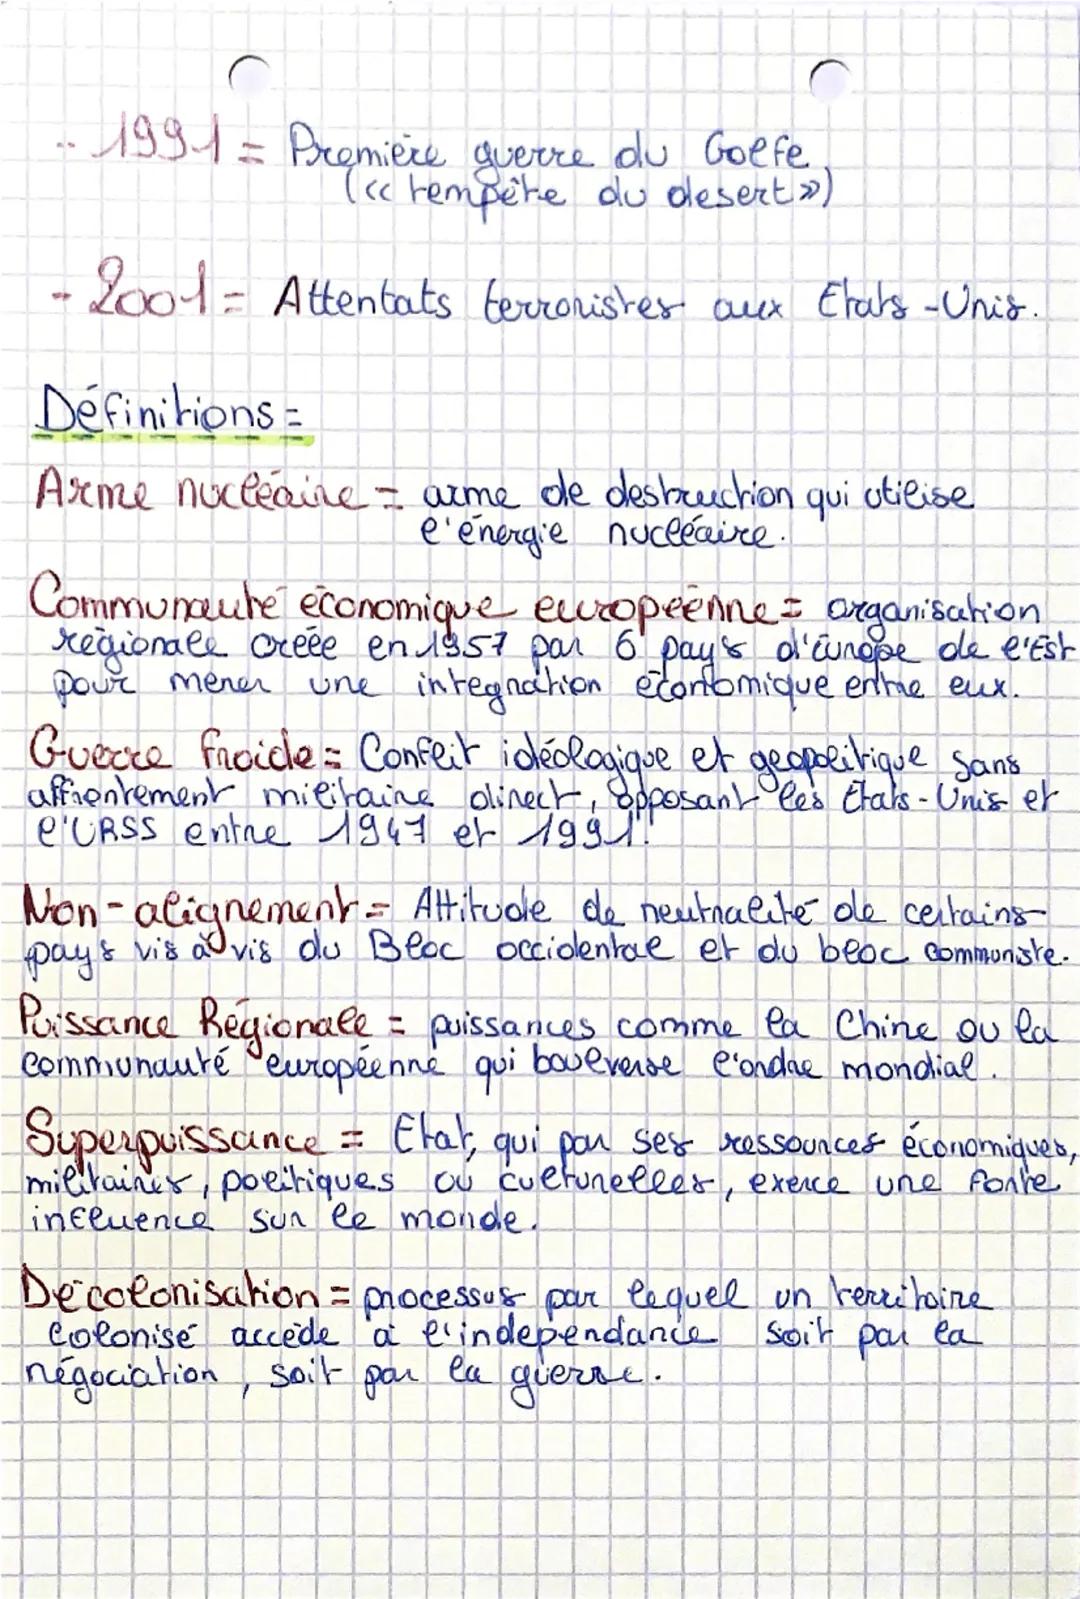 - 1991 = Première guerre du Golfe
(« tempête du desert »)
- 2001 = Attentats terroristes aux Etats-Unis.
Définitions =
Arme nucléaire = arme de destruction qui utilise
l'énergie nucléaire.
Communauté économique européenne = organisation
régionale créée en 1957 par 6 pays d'Europe de l'Est
pour mener une integration économique entre eux.
Guerre froide = Conflit idéologique et geopolitique sans
affrontement militaire direct, opposant les Etats-Unis et
l'URSS entre 1947 et 1991.
Non-alignement = Attitude de neutralité de certains
pays vis à vis du Bloc occidental et du bloc communiste.
Puissance Régionale = puissances comme la Chine ou la
communauté européenne qui bouleverse l'ordre mondial.
Superpuissance = Etat, qui par ses ressources économiques,
militaires, politiques ou culturelles, exerce une forte
influence sur le monde.
Décolonisation = processus par lequel un territoire
colonisé accède à l'indépendance soit par la
négociation, soit par la guerre.